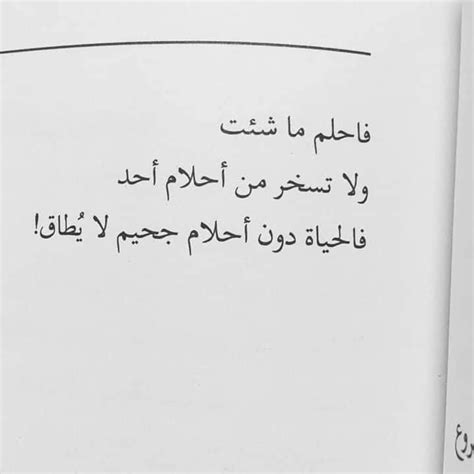 فاحلم ما شئت
ولا تسخر من أحلام أحد
فالحياة دون أحلام جحيم لا يُطاق!